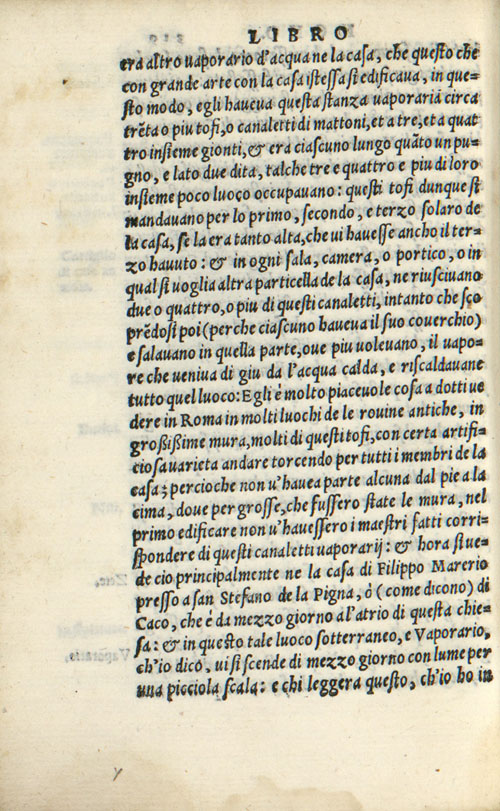 LIBRO
era altro uaporario d'acqua ne la casa, che questo che
con grande arte con la casa istessa si edificaua, in que-
sto modo, egli haueua questa stanza uaporaria circa
trẽta o piu tofi, o canaletti di mattoni, et a tre, et a quat
tro insieme gionti, & era ciascuno lungo quãto un pu-
gno, e lato due dita, talche tre e quattro e piu di loro
insieme poco luoco occupauano: questi tofi dunque si
mandauano per lo primo, secondo, e terzo solaro de
la casa, se la era tanto alta, che ui hauesse ancho il ter-
zo hauuto: & in ogni sala, camera, o portico, o in
qual si uoglia altra particella de la casa, ne riusciuano
due o quattro, o piu di questi canaletti, intanto che sco
prẽdosi poi (perche ciascuno haueua il suo couerchio)
esalauano in quella parte, oue piu uoleuano, il uapo-
re che ueniua di giu da l'acqua calda, e riscaldauane
tutto quel luoco: Egli è molto piaceuole cosa a dotti ue
dere in Roma in molti luochi de le rouine antiche, in
grossissime mura, molti di questi tofi, con certa artifi-
ciosa uarieta andare torcendo per tutti i membri de la
casa; percioche non u'hauea parte alcuna dal pie a la
cima, doue per grosse, che fussero state le mura, nel
primo edificare non u'hauessero i maestri fatti corri-
spondere di questi canaletti uaporarij: & hora si ue-
de cio principalmente ne la casa di Filippo Marerio
presso a san Stefano de la Pigna, ò (come dicono) di
Caco, che è da mezzo giorno al'atrio di questa chie-
sa: & in questo tale luoco sotterraneo, e Vaporario,
ch'io dicò, ui si scende di mezzo giorno con lume per
una picciola scala: e chi leggera questo, ch'io ho in